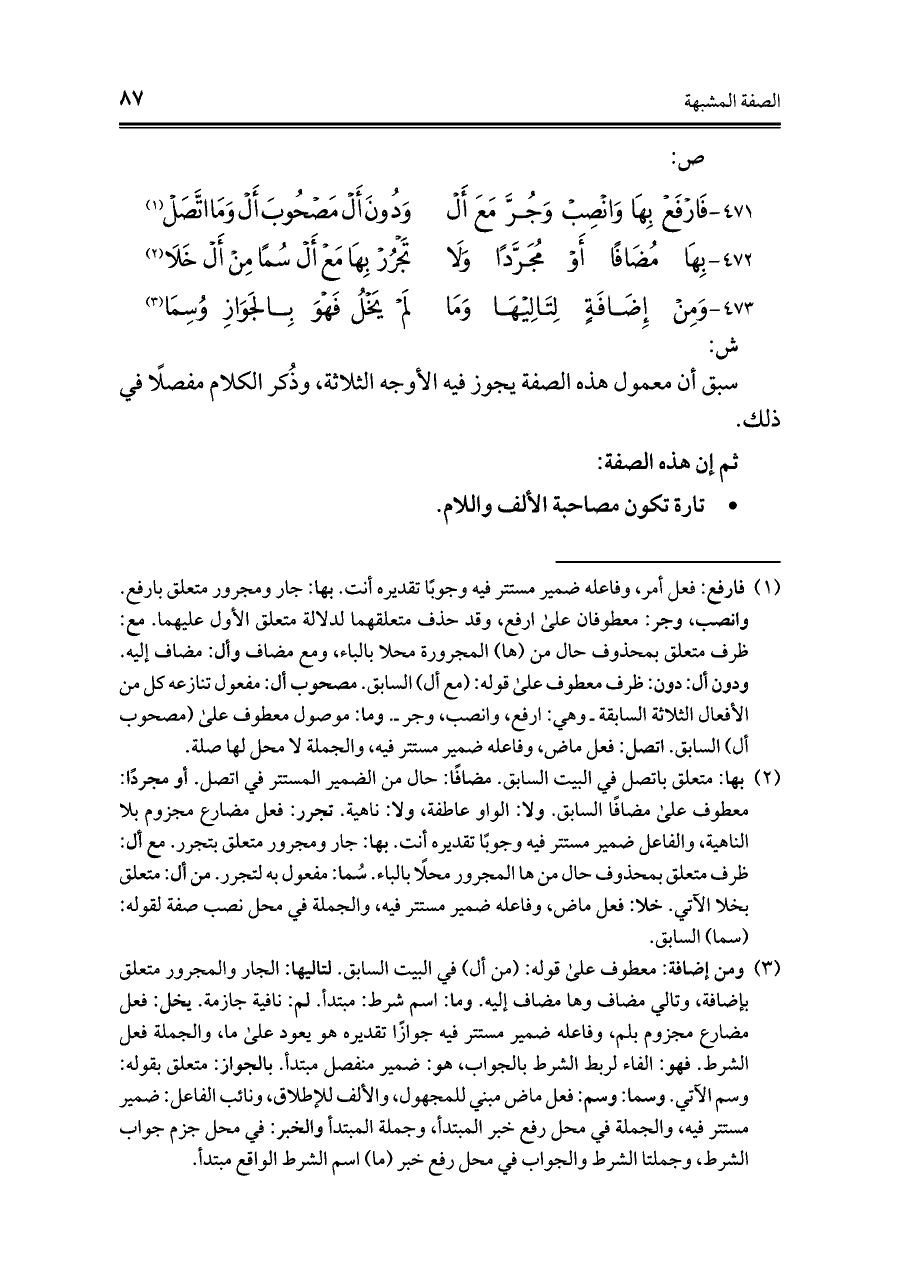 الصفة المشبهة ٨٧
ص:
٤٧١-فَارْفَعْ بِهَا وَانْصِبْ وَجُرَّ مَعَ أَلْ وَدُونَ أَلْ مَصْحُوبَ أَلْ وَمَا اتَّصَلْ(١)
٤٧٢-بِهَا مُضَافًا أَوْ مُجَرَّدًا وَلَا تَجْرُرْ بِهَا مَعْ أَلْ سُمًا مِنْ أَلْ خَلَا(٢)
٤٧٣-وَمِنْ إِضَافَةٍ لِتَالِيْهَا وَمَا لَمْ يَخْلُ فَهْوَ بِالجَوَازِ وُسِمَا(٣)
ش:
سبق أن معمول هذه الصفة يجوز فيه الأوجه الثلاثة، وذُكر الكلام مفصلًا في
ذلك.
ثم إن هذه الصفة:
• تارة تكون مصاحبة الألف واللام.
(١) فارفع: فعل أمر، وفاعله ضمير مستتر فيه وجوبًا تقديره أنت. بها: جار ومجرور متعلق بارفع.
وانصب، وجر: معطوفان علىٰ ارفع، وقد حذف متعلقهما لدلالة متعلق الأول عليهما. مع:
ظرف متعلق بمحذوف حال من (ها) المجرورة محلا بالباء، ومع مضاف وأل: مضاف إليه.
ودون أل: دون: ظرف معطوف علىٰ قوله: (مع أل) السابق. مصحوب أل: مفعول تنازعه كل من
الأفعال الثلاثة السابقة ـ وهي: ارفع، وانصب، وجر ـ. وما: موصول معطوف علىٰ (مصحوب
أل) السابق. اتصل: فعل ماض، وفاعله ضمير مستتر فيه، والجملة لا محل لها صلة.
(٢) بها: متعلق باتصل في البيت السابق. مضافًا: حال من الضمير المستتر في اتصل. أو مجردًا:
معطوف علىٰ مضافًا السابق. ولا: الواو عاطفة، ولا: ناهية. تجرر: فعل مضارع مجزوم بلا
الناهية، والفاعل ضمير مستتر فيه وجوبًا تقديره أنت. بها: جار ومجرور متعلق بتجرر. مع أل:
ظرف متعلق بمحذوف حال من ها المجرور محلًا بالباء. سُما: مفعول به لتجرر. من أل: متعلق
بخلا الآتي. خلا: فعل ماض، وفاعله ضمير مستتر فيه، والجملة في محل نصب صفة لقوله:
(سما) السابق.
(٣) ومن إضافة: معطوف علىٰ قوله: (من أل) في البيت السابق. لتاليها: الجار والمجرور متعلق
بإضافة، وتالي مضاف وها مضاف إليه. وما: اسم شرط: مبتدأ. لم: نافية جازمة. يخل: فعل
مضارع مجزوم بلم، وفاعله ضمير مستتر فيه جوازًا تقديره هو يعود علىٰ ما، والجملة فعل
الشرط. فهو: الفاء لربط الشرط بالجواب، هو: ضمير منفصل مبتدأ. بالجواز: متعلق بقوله:
وسم الآتي. وسما: وسم: فعل ماض مبني للمجهول، والألف للإطلاق، ونائب الفاعل: ضمير
مستتر فيه، والجملة في محل رفع خبر المبتدأ، وجملة المبتدأ والخبر: في محل جزم جواب
الشرط، وجملتا الشرط والجواب في محل رفع خبر (ما) اسم الشرط الواقع مبتدأ.